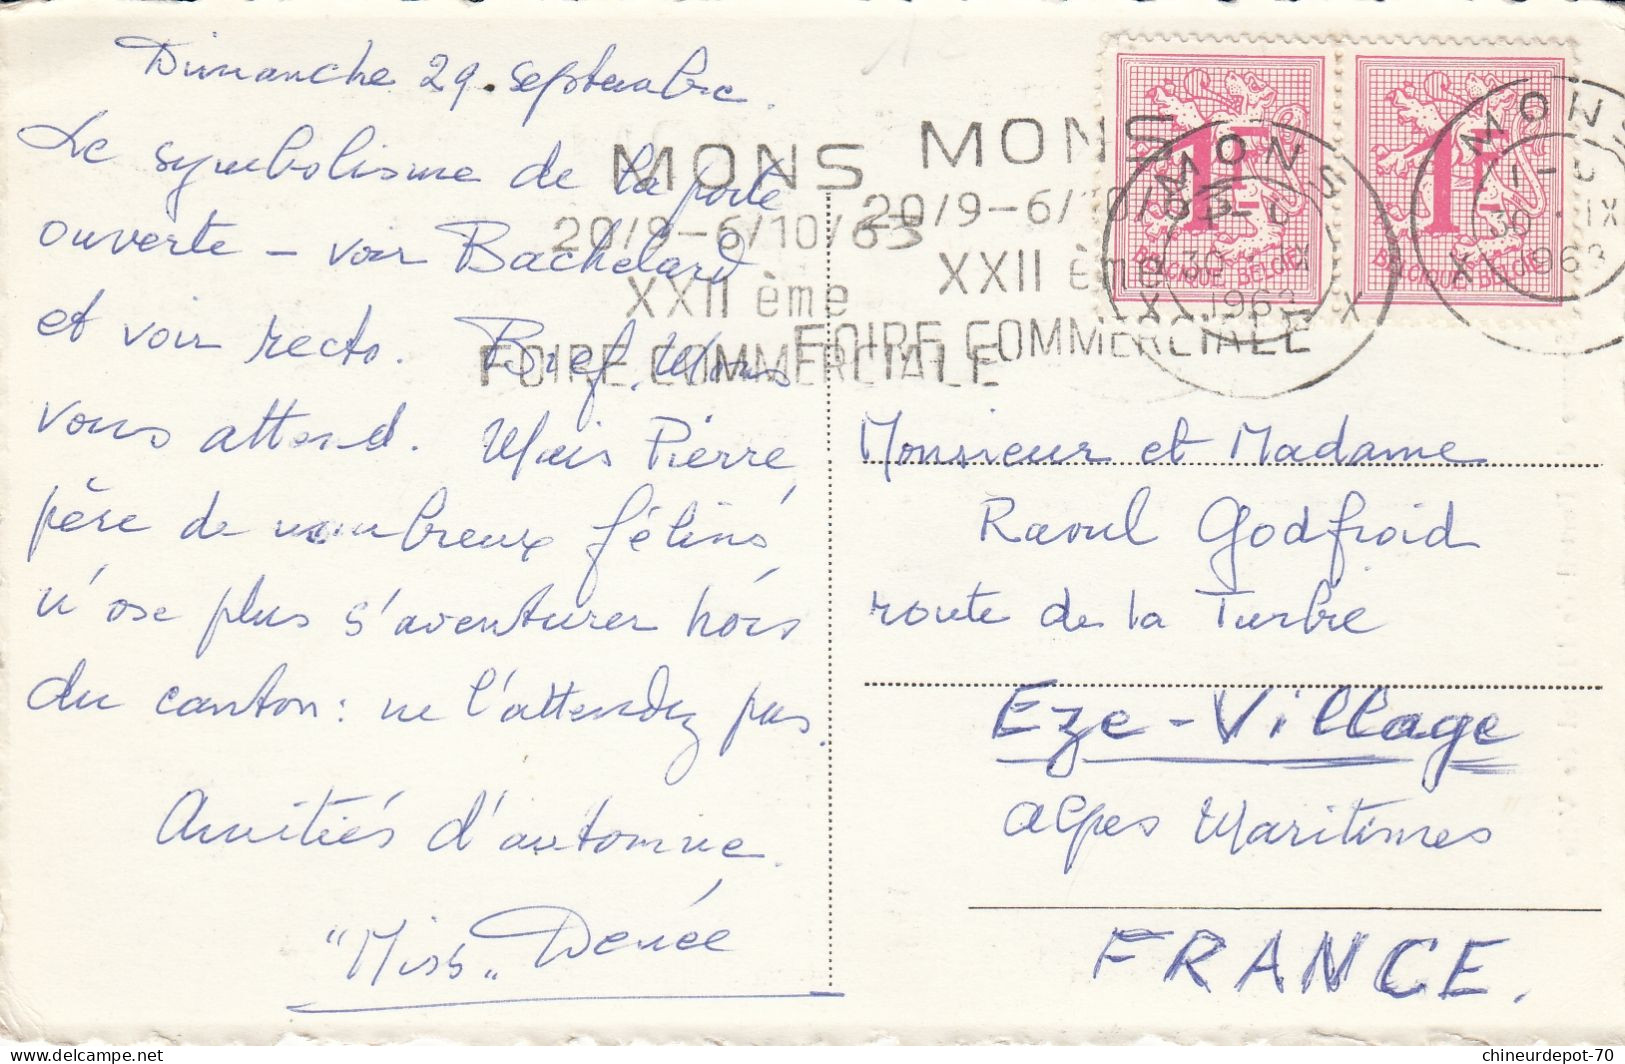 Dimanche 29. septembre.
Le symbolisme de la porte
ouverte – voir Bachelard
et voir recto. Bref. Mons
vous attend. Mais Pierre,
père de nombreux félins
n'ose plus s'aventurer hors
du canton : ne l'attendez pas.
Amitiés d'automne.
"Miss" Denée
MONS
20/9–6/10/63
XXII ème
FOIRE COMMERCIALE
MONS
20/9–6/10/63
XXII ème
FOIRE COMMERCIALE
1F
BELGIQUE-BELGIE
1F
BELGIQUE-BELGIE
MONS
30 IX
1963
X X
MONS
30 IX
1963
X
Monsieur et Madame
Raoul Godfroid
route de la Turbie
Eze-Village
Alpes Maritimes
FRANCE.
chineurdepot-70